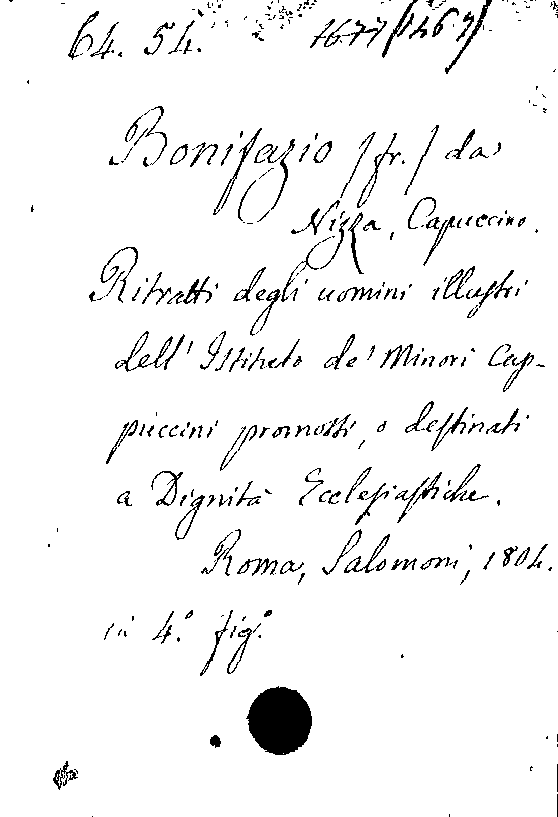 64. 54. 1677 (1467)
Bonifazio [fr.] da
Nizza, Capuccino.
Ritratti degli uomini illustri
dell' Istituto de' Minori Cap-
puccini promossi, o destinati
a Dignità Ecclesiastiche.
Roma, Salomoni, 1804.
in 4.° fig.°